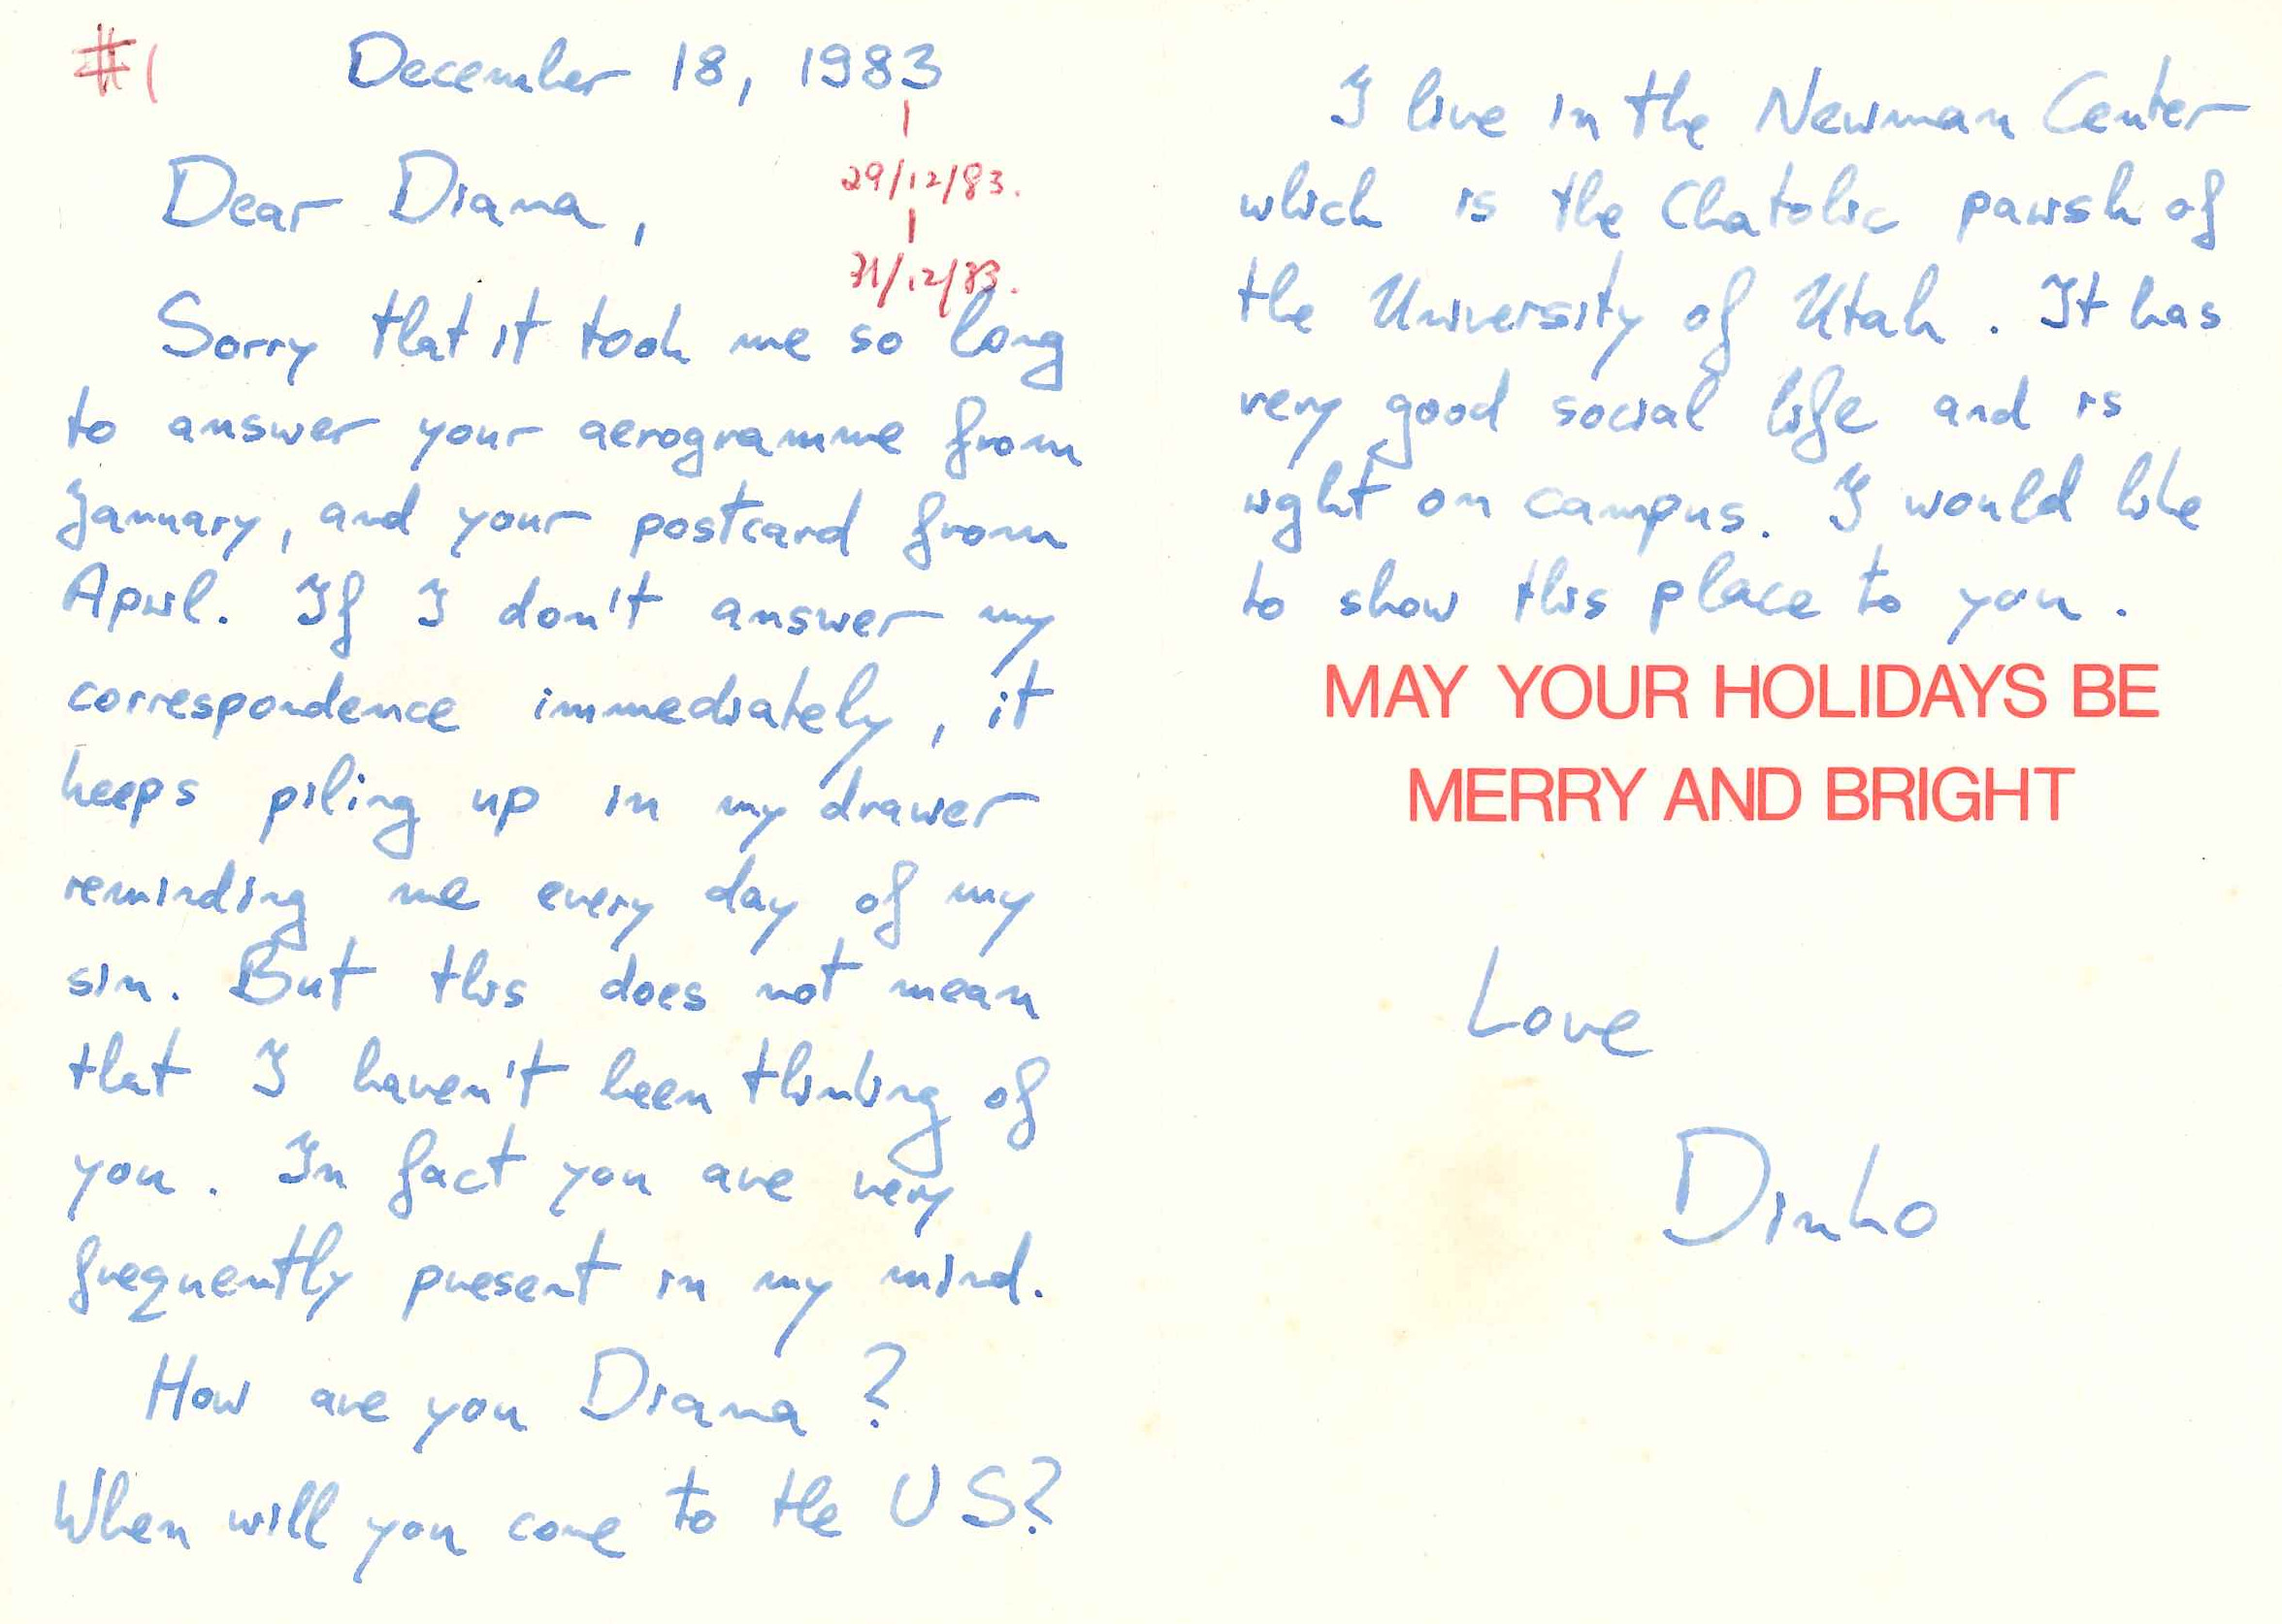 #1
December 18, 1983
29/12/83.
31/12/83.
Dear Diana,
Sorry that it took me so long
to answer your aerogramme from
January, and your postcard from
April. If I don't answer my
correspondence immediately, it
keeps piling up in my drawer
reminding me every day of my
sin. But this does not mean
that I haven't been thinking of
you. In fact you are very
frequently present in my mind.
How are you Diana?
When will you come to the US?
I live in the Newman Center
which is the Chatolic parish of
the University of Utah. It has
very good social life and is
right on campus. I would like
to show this place to you.
MAY YOUR HOLIDAYS BE
MERRY AND BRIGHT
Love
Dinko